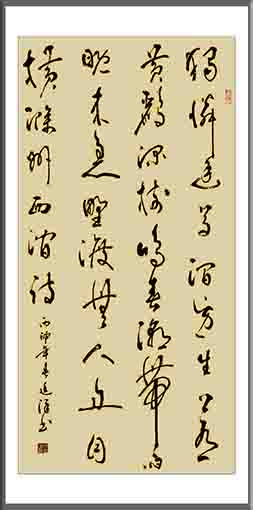 獨憐幽草澗邊生上有
黄鸝深樹鳴春潮帶雨
晚來急野渡無人舟自
橫滁州西澗詩
丙申年春